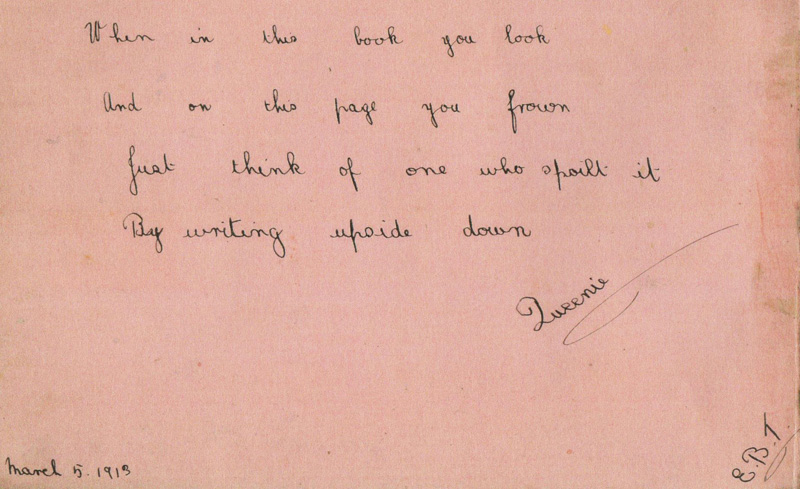 When in this book you look
And on this page you frown
Just think of one who spoilt it
By writing upside down
Queenie
March 5. 1913
E.B.T.